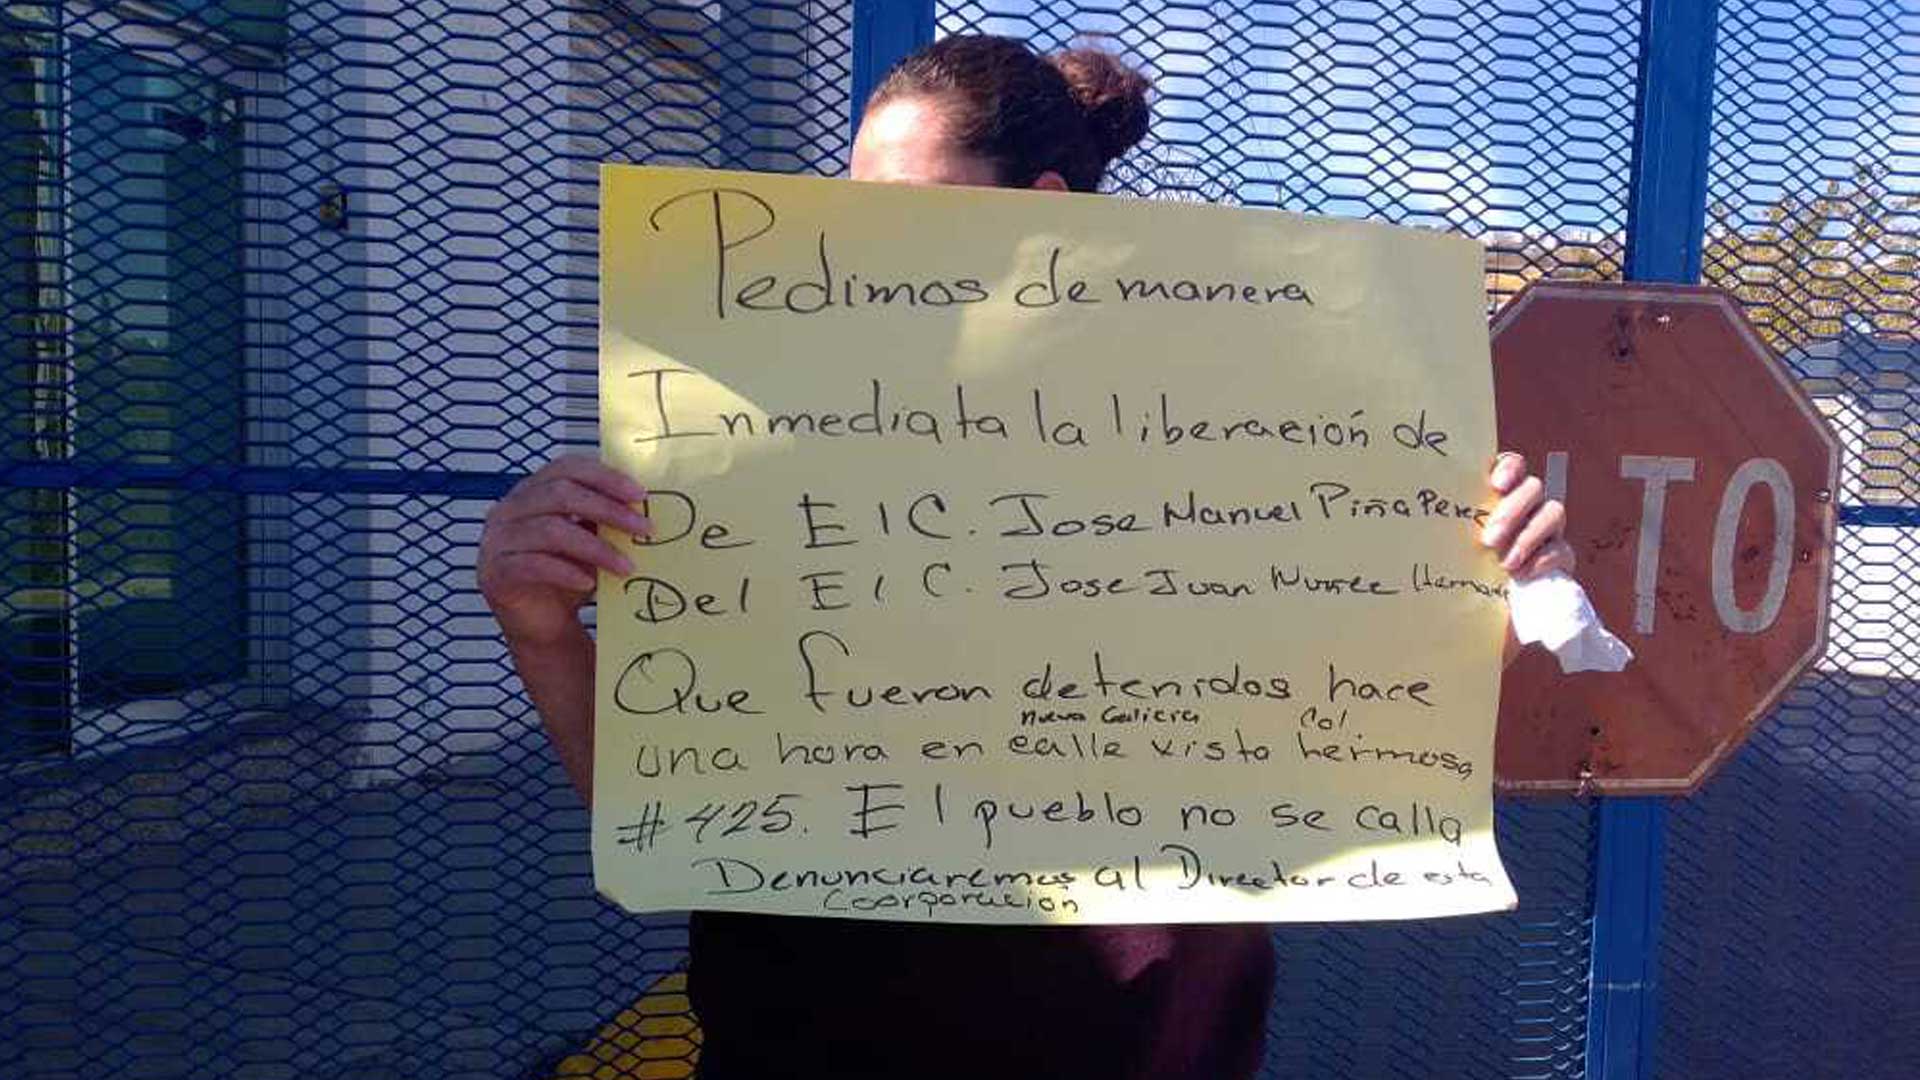 Pedimos de manera
Inmediata la liberación de
De E I C. Jose Manuel Piña Perez
Del E I C. Jose Juan
Que fueron detenidos hace
nueva Galicia Col
una hora en calle vista hermosa
#425. El pueblo no se calla
Denunciaremos al Director de esta
Coorporación
LTO